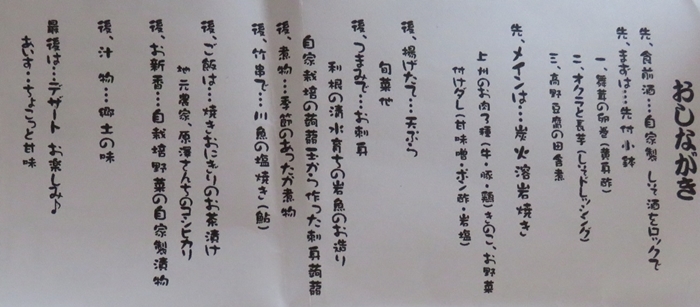 おしながき
先、食前酒…自家製 しそ酒をロックで
先、まずは…先付小鉢
一、舞茸の卵巻(黄身酢)
二、オクラと長芋(しそドレッシング)
三、高野豆腐の田舎煮
先、メインは…炭火溶岩焼き
上州のお肉3種(牛・豚・鶏)きのこ、お野菜
付けダレ(甘味噌・ポン酢・岩塩)
後、揚げたて…天ぷら
旬菜他
後、つまみで…お刺身
利根の清水育ちの岩魚のお造り
自家栽培の蒟蒻玉から作った刺身蒟蒻
後、煮物…季節のあったか煮物
後、竹串で…川魚の塩焼き(鮎)
後、ご飯は…焼きおにぎりのお茶漬け
地元農家、原澤さんちのコシヒカリ
後、お新香…自栽培野菜の自家製漬物
後、汁 物…郷土の味
最後は…デザート お楽しみ♪
あいす…ちょこっと甘味